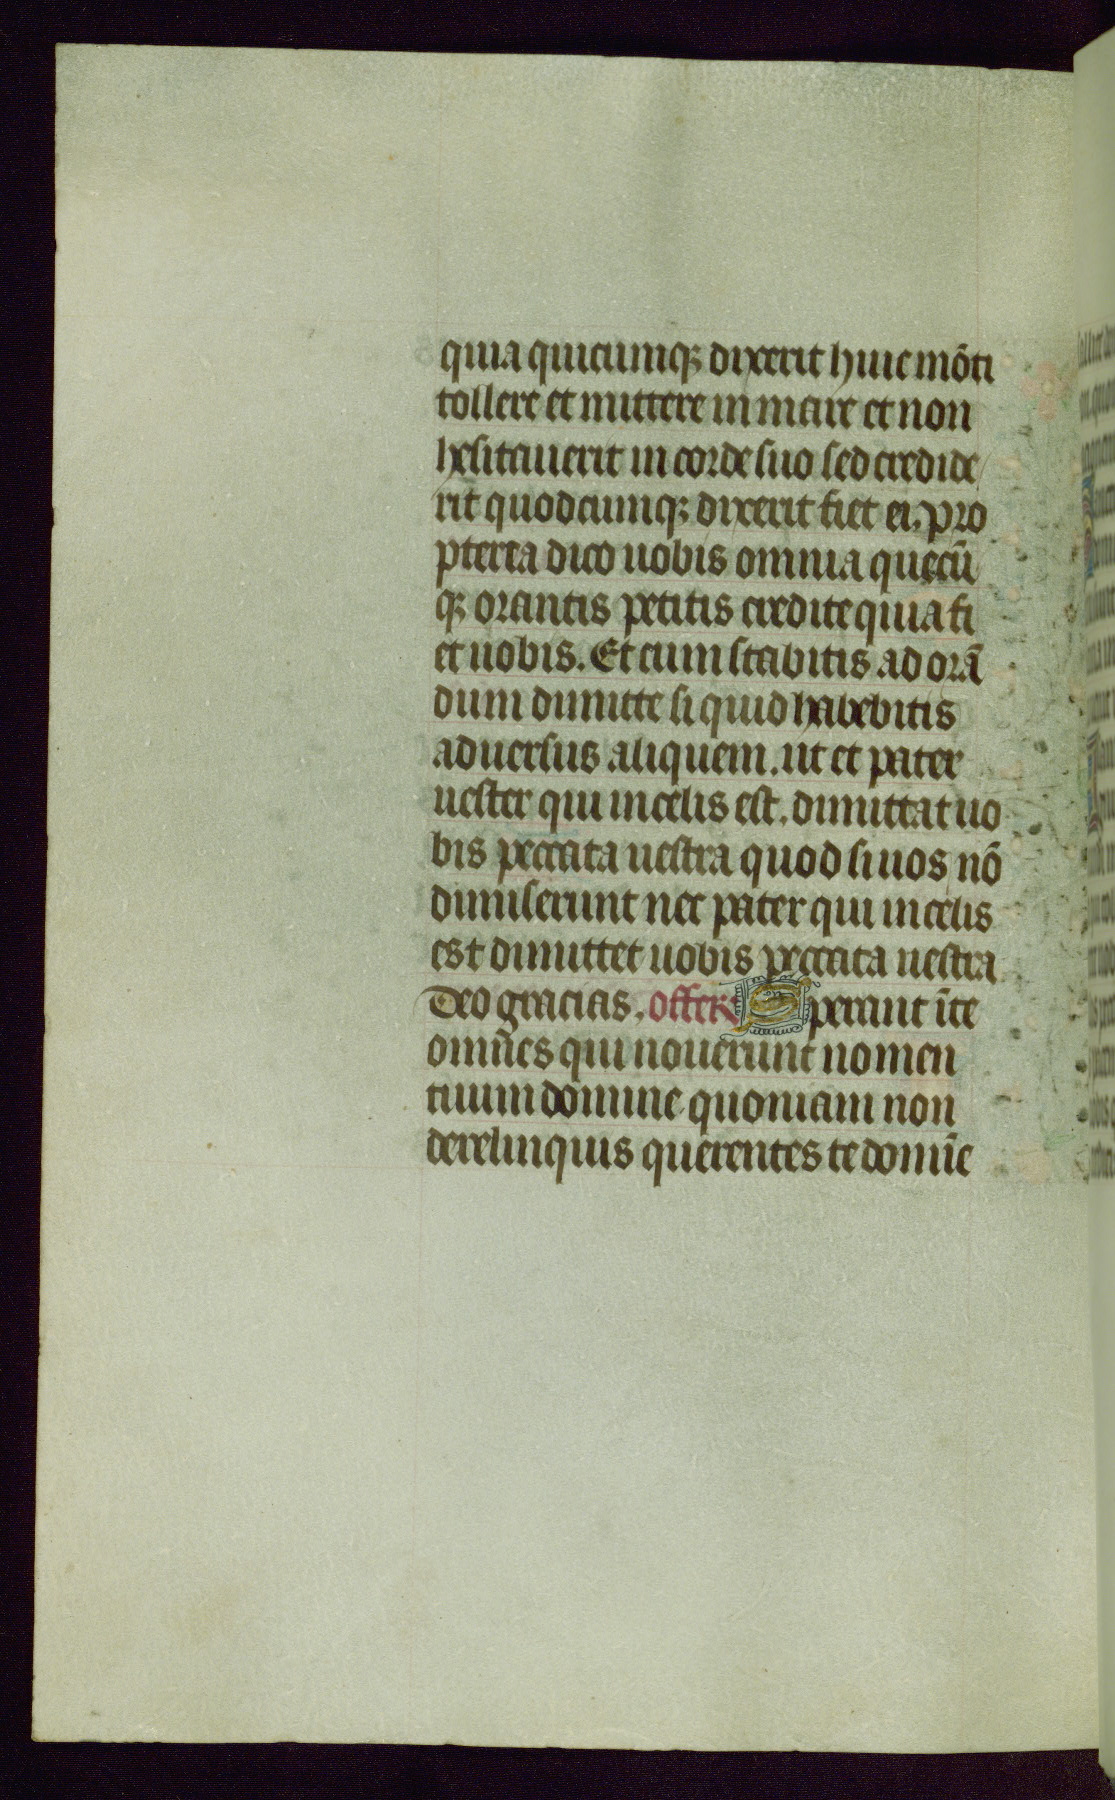 quia quicumqꝫ dixerit huic mōti
tollere et mittere in mare et non
hesitauerit in corde suo sed credide
rit quodcumqꝫ dixerit fiet ei. pro
pterea dico uobis omnia quecū
qꝫ orantis petitis credite quia fi
et uobis. Et cum stabitis ad orā
dum dimitte si quid habebitis
aduersus aliquem. ut et pater
uester qui in celis est. dimittat uo
bis peccata uestra quod si uos nō
dimiserunt nec pater qui in celis
est dimittet uobis peccata uestra
Deo gracias. offer Sperant īte
omn̄es qui nouerunt nomen
tuum domine quoniam non
derelinquis querentes te domīe